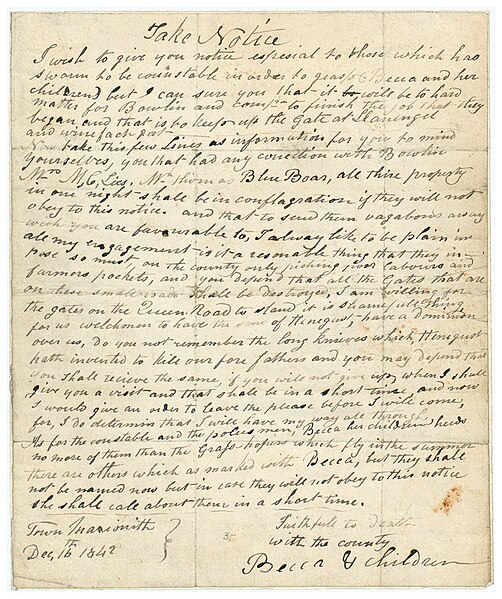 Take Notice
I wish to give you notice espesial to those which has
sworn to be counstable in order to grasp Becca and her
children but I can sure you that it will be to hard
matter for Bowlin and Compy to finish the job that they
began and that is to keep up the gate at Llanvugil
and winefach gate
Now take this few Lines as information for you to mind
yourselves, you that had any conection with Bowlin
Mrs M, C, Lees. Mr Thomas Blue Boar, all thire property
in one night shall be in conflagration if they will not
obey to this notice. and that to send them vagabons away
wich you are favourable to, I alway like to be plain in
all my engagement is it a resonable thing that they im-
pose so must on the county only picking poor labours and
farmors pockets, and you depend that all the Gates that are
on these small roads shall be destroyed, I am willing for
the gates on the Queen Road to stand it is shamefull thing
for us welchmen to have the sons of Henegust have a dominion
over us, do you not remember the long knives which Henegust
hath invented to kile our fore fathers and you may depend that
you shall recieve the same, if you will not give up when I shall
give you a visit and that shall be in a short time, and now
I would give an order to leave the please before I will come,
for, I do determin that I will have my way all through.
As for the constable and the poleesmen, Becca her children heeds
no more of them than the Grass-hopers which fly in the summer
there are others which as marked with Becca, but they shall
not be named now but in case they will not obey to this notice
she shall cale about them in a short time.
Faithfull to Death
with the county
Becca & children
Dec, 16 1842